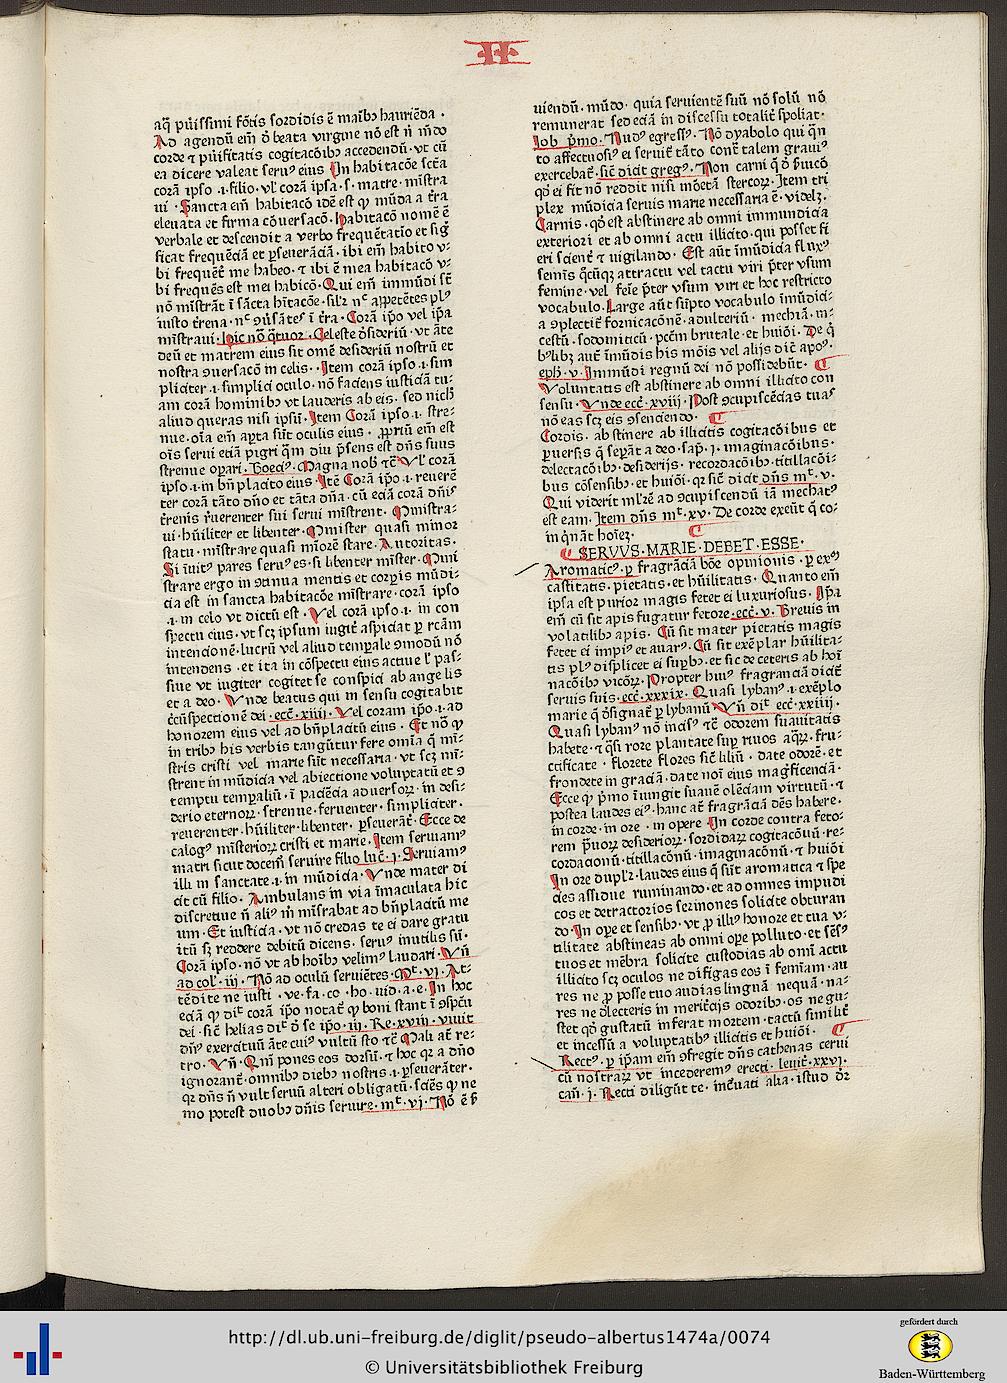 II
aq̄ pu̇issimi fōtis sordidis ē maibꝫ hauriēda ·
Ad agendū em̄ ð beata virgine nō est n̄ mdo
corde ⁊ pu̇ifitatis cogitacōibꝫ accedendū · vt cū
ea dicere valeat seruꝰ eius In habitacōe sctā
corā ipso · i · filio · vl̕ corā ipsa · s · matre · mı̄stra
ui · Sancta em̄ habitacō idē est qꝫ mūda a t̄ra
eleuata et firma cōuersacō · Habitacō nomē ē
verbale et descendit a verbo frequētatio et sig̅
ficat frequēciā et ꝑseuerāciā · ibi em̄ habito v-
bi frequēt̄ me habeo · ⁊ ibi ē mea habitacō v-
bi frequēs est mei habicō · Qui em̄ immūdi st̄
nō mı̄strāt ī sācta hı̄tacōe · silꝛ nc̄ appetētes plꝰ
iusto t̄rena · nc̄ ꝯusātes ī t̄ra · Corā ip̄o vel ip̄a
mı̄straui · hic nō q̄tuor · Celeste ðsideriū · vt āte
deū et matrem eius sit omē desideriū nostrū et
nostra ꝯuersacō in celis · Item corā ipso · i · sim
pliciter · i · simplici oculo · nō faciens iusticiā tu-
am corā hominibꝫ vt lauderis ab eis · sed nichl̕
aliud queras nisi ipsū · Item Corā ipso · i · stre-
nue · oı̄a em̄ aꝑta sūt oculis eius · ꝓpriū em̄ est
oı̄s serui eciā pigri q̄m diu p̄sens est dn̄s suus
strenue oꝑari · Boeciꝰ · Magna nobꝫ ⁊c̄ Vl̕ corā
ipso · i · in bn̄placito eius Itē Corā ip̄o · i · reuerē
ter corā tāto dn̄o et tāta dn̄a · cū eciā corā dn̄is
t̄renis ru̇erenter sui serui mı̄strent · Ministra-
ui · hu̇iliter et libenter · Minister quasi minor
statu · mı̄strare quasi miorē stare · Autoritas ·
Si iuitꝰ pares seruꝰ es · si libenter mı̄ster · Mini
strare ergo in ꝯtinua mentis et corꝑis mūdi-
cia est in sancta habitacōe mı̄strare · corā ipso
· i · in celo vt dictū est · Vel corā ipso · i · in con
spectu eius · vt scꝫ ipsum iugit̄ aspiciat ꝑ rcām
intencionē · lucrū vel aliud temꝑale ꝯmodū nō
intendens · et ita in cōspectu eius actiue l̕ pas-
siue vt iugiter cogitet se conspici ab ange lis
et a deo · Vnde beatus qui in sensu cogitabit
c̄cūspectionē dei · ecc̄ · xiiii · Vel coram ip̄o · i · ad
honorem eius vel ad bn̄placitū eius · Et nō qꝫ
in tribꝫ his verbis tangūtur fere omı̄a q̄ mı̄-
stris cristi vel marie sūt necessaria · vt scꝫ mı̄-
strent in mūdicia vel abiectione voluptatū et ꝯ
temptu temꝑaliū · ī paciēcia aduersoꝝ · in desi-
derio eternoꝝ · strenue · feruenter · simpliciter ·
reuerenter · hu̇iliter · libenter · ꝑseuerāt̄ · Ecce de
calogꝰ misterioꝝ cristi et marie · Item seruiamꝰ
matri sicut docem̄ seruire filio luc̄ · j · Seruiamꝰ
illi in sanctate · i · in mūdicia · Vnde mater di
cit cū filio · Ambulans in via īmaculata hic
discretiue n̄ aliꝰ m̄ mı̄strabat ad bn̄placitū me
um · Et iusticia · vt nō credas te ei dare gratu
itū sꝫ reddere debitū dicens · seruꝰ inutilis sū ·
Corā ipso · nō vt ab hoı̄bꝫ velimꝰ laudari · Vn̄
ad col̕ · iij · Nō ad oculū seruiētes · Mt̄ · vj · At-
tēdite ne iusti · ve · fa · co · ho · uid · a · e · In hoc
eciā qꝫ dit̄ corā ip̄o notat̄ qꝫ boni stant ī ꝯspcū
dei · sic̄ helias dit̄ ð se ip̄o · iij · Re · xviij · viuit
dn̄ꝰ exercituū āte cuiꝰ vultū sto ⁊c̄ Mali at̄ re-
tro · Vn̄ · Qm̄ pones eos dorsū · ⁊ hoc qꝛ a dn̄o
ignorant̄ · omnibꝫ diebꝫ nostris · i · ꝑseuerāter ·
qꝛ dn̄s n̄ vult seruū alteri obligatū · sciēs qꝫ ne
mo potest duobꝫ dn̄is seruire · mt̄ · vj · Nō ē b̄
uiendū · mūdo · quia seruientē suū nō solū nō
remunerat sed eciā in discessu totalit̄ spoliat ·
Iob p̄mo · Nudꝰ egressꝰ · Nō dyabolo qui q̄n
to affectuosiꝰ ei seruit̄ tāto cont̄ talem grauiꝰ
exercebat̄ · sic̄ dicit gregꝰ · Non carni q̄ ð ſuicō
qð ei fit nō reddit nisi mōetā stercoꝝ · Item tri
plex mūdicia seruis marie necessaria ē · videlꝫ ·
Carnis · qð est abstinere ab omni immundicia
exteriori et ab omni actu illicito · qui posset fi
eri scient̄ ⁊ uigilando · Est aūt īmūdicia fluxꝰ
semı̄s q̄cūqꝫ attractu vel tactu viri p̄ter vsum
femine · vel fēie p̄ter vsum viri et hoc restricto
vocabulo · Large aūt sūpto vocabulo īmūdici-
a ꝯplectit̄ fornicacōnē · adulteriū · mechiā · in-
cestū · sodomiticū · pctm̄ brutale · et huiōi · De q̄
bꝰlibꝫ aut̄ īmūdis his mōis vel alijs dic̄ apoꝰ ·
eph̕ · v · Immūdi regnū dei nō possidebūt · ¶
Voluntatis est abstinere ab omni illicito con
sensu · Vnde ecc̄ · xviij · Post ꝯcupiscēcias tuas
nō eas scꝫ eis ꝯsenciendo · ¶
Cordis · ab stinere ab illicitis cogitacōibus et
ꝑuersis q̄ seꝑāt a deo · sap̄ · j · imaginacōibus ·
delectacōibꝫ · desiderijs · recordacōibꝫ · titillacōi-
bus cōsensibꝫ · et huiōi · qꝛ sic̄ dicit dn̄s mt̄ · v ·
Qui viderit ml̕rē ad ꝯcupiscendū iā mechatꝰ
est eam · Item dn̄s mt̄ · xv · De corde exeūt q̄ co-
in qn̄āt hoı̄ez · ¶
¶ SERVVS · MARIE · DEBET · ESSE ·
Aromaticꝰ · ꝑ fragrāciā bōe opinionis · ꝑ exꝰ
castitatis · pietatis · et hu̇ilitatis · Quanto em̄
ipsa est purior magis fetet ei luxuriosus · Ip̄a
em̄ cū sit apis fugatur fetore · ecc̄ · v · Breuis in
volatilibꝫ apis · Cū sit mater pietatis magis
fetet ei impiꝰ et auarꝰ · Cū sit exēplar hu̇ilita-
tis plꝰ displicet ei suꝑbꝰ · et sic de ceteris ab hoı̄
nacōibꝫ vicōꝝ · Propter huiꝰ fragranciā dicit̄
seruis suis · ecc̄ · xxxix · Quasi lybanꝰ · i · exēplo
marie q̄ ðsignat̄ ꝑ lybanū Vn̄ dit̄ ecc̄ · xxiiij ·
Quasi lybanꝰ nō incisꝰ ⁊c̄ odorem suauitatis
habete · ⁊ q̄si rore plantate suꝑ riuos aqꝝ · fru-
ctificate · florete flores sic̄ liliū · date odorē · et
frondete in graciā · date noı̄ eius mag̅ficenciā ·
Ecce qꝫ p̄mo īungit suauē olēciam virtutū · ⁊
postea laudes eiꝰ · hanc at̄ fragrāciā dēs habere ·
in corde · in ore · in opere In corde contra feto-
rem p̄uoꝝ desiderioꝝ · sordidaꝝ cogitacōuū · re-
cordacionū · titillacōnū · imaginacōnū · ⁊ huiōi
In ore dupl̕ꝛ · laudes eius q̄ sūt aromatica ⁊ spe
cies assidue ruminando · et ad omnes impudi
cos et detractorios sermones solicite obturan
do · In oꝑe et sensibꝫ · vt ꝓ illiꝰ honore et tua v-
tilitate abstineas ab omni oꝑe polluto · et sēsꝰ
tuos et mēbra solicite custodias ab omı̄ actu
illicito scꝫ oculos ne difigas eos ī femı̄am · au
res ne ꝓ posse tuo audias linguā nequā · na-
res ne ðlecteris in merit̄cijs odoribꝫ · os ne gu-
stet qð gustatū inferat mortem · tactū similit̄
et incessū a voluptatibꝫ illicitis et huiōi · ¶
Rectꝰ · ꝑ ip̄am em̄ ꝯfregit dn̄s cathenas cerui
cū nostraꝝ vt incederemꝰ erecti · leuit̄ · xxvj ·
cań · j · Recti diligūt te · int̄uati alia · istud ðr
http://dl.ub.uni-freiburg.de/diglit/pseudo-albertus1474a/0074
© Universitätsbibliothek Freiburg
gefördert durch
Baden-Württemberg